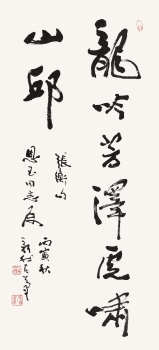 龍吟芳澤虎嘯
山邱
張衡句
恩玉同志屬
丙寅秋